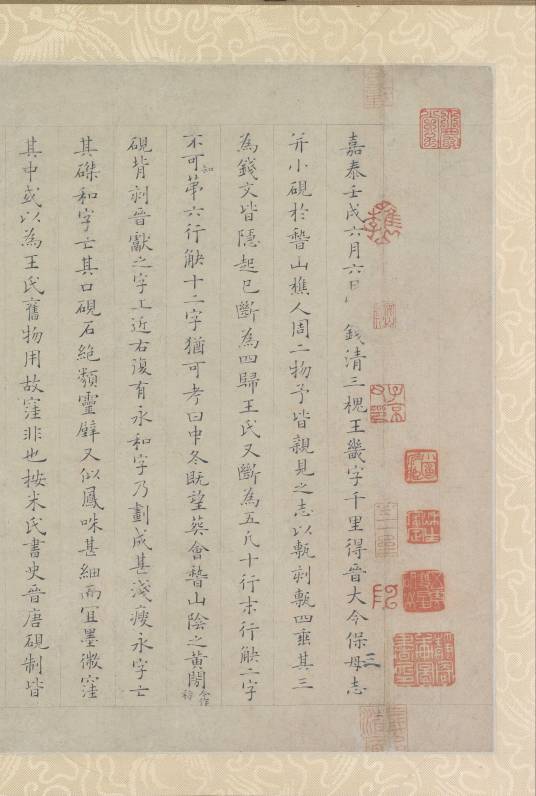 嘉泰壬戌六月六日錢清三槐王畿字千里得晉大令保母志
并小硯於嵇山樵人周二物予皆親見之志以甎刻甎四垂其三
為錢文皆隱起已斷為四歸王氏又斷為五凡十行末行缺二字
不可知第六行缺十二字猶可考曰中冬既望葬會嵇山陰之黃閍合作稱
硯背刻晉獻之字上近右復有永和字乃劃成甚淺瘦永字亡
其磔和字亡其口硯石絕類靈璧又似鳳咮甚細而宜墨微窪
其中或以為王氏舊物用故窪非也按米氏書史晉唐硯制皆
三